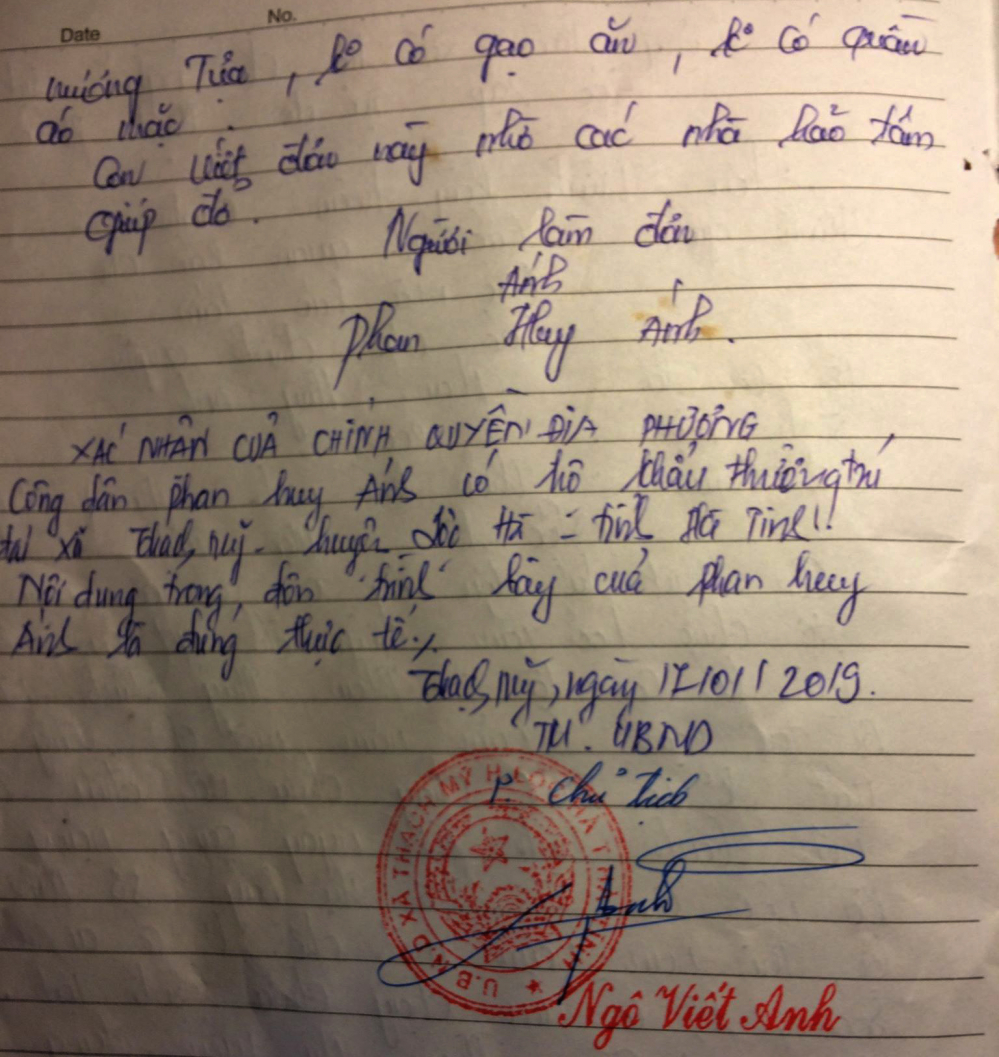 Date No.
nương Tựa, ko có gạo ăn, ko có quần
áo mặc.
Con viết đơn này nhờ các nhà hảo tâm
giúp đỡ.
Người làm đơn
Ánh
Phan Huy Ánh.
XÁC NHẬN CỦA CHÍNH QUYỀN ĐỊA PHƯƠNG
Công dân phan huy Ánh có hộ khẩu thường trú
tại xã Thạch Mỹ - huyện Lộc Hà - tỉnh Hà Tĩnh!!
Nội dung trong đơn trình bày của phan huy
Ánh là đúng thực tế./.
Thạch Mỹ, ngày 17/01/2019.
TM. UBND
P. Chủ tịch
U.B.N.D XÃ THẠCH MỸ H. LỘC HÀ T. HÀ TĨNH
Anh
Ngô Viết Anh